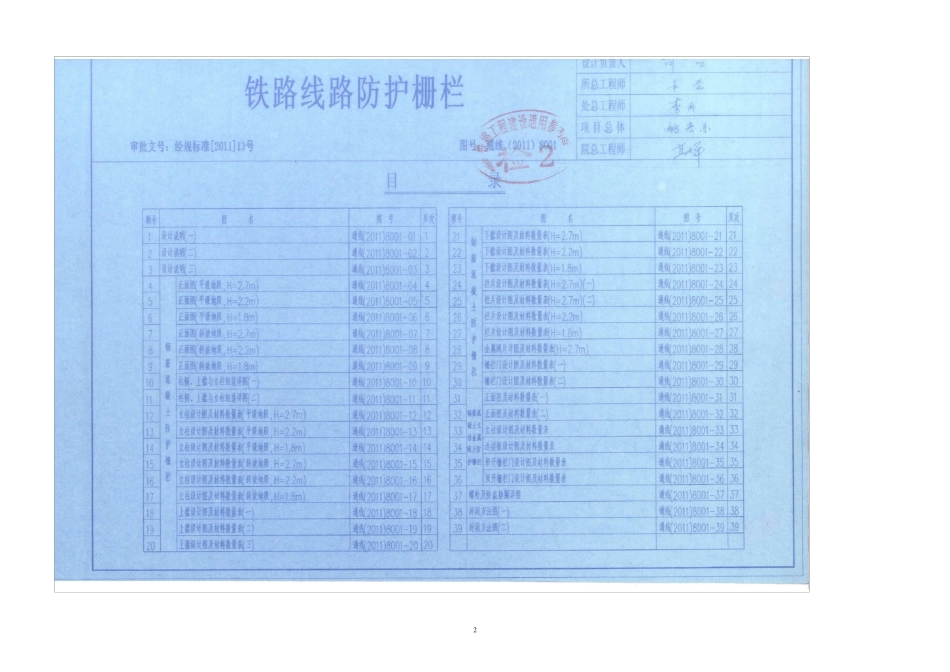 设计负责人
铁路线路防护栅栏
所总工程师
处总工程师
项目总体
院总工程师
审批文号：经规标准[2011]13号
图号：通线（2011）8001
检2
目 录
顺号 图 名 图 号 页次
1 设计说明(一) 通线(2011)8001-01 1
2 设计说明(二) 通线(2011)8001-02 2
3 设计说明(三) 通线(2011)8001-03 3
钢筋混凝土防护栅栏
4 正面图(平坡地段,H=2.7m) 通线(2011)8001-04 4
5 正面图(平坡地段,H=2.2m) 通线(2011)8001-05 5
6 正面图(平坡地段,H=1.8m) 通线(2011)8001-06 6
7 正面图(斜坡地段,H=2.7m) 通线(2011)8001-07 7
8 正面图(斜坡地段,H=2.2m) 通线(2011)8001-08 8
9 正面图(斜坡地段,H=1.8m) 通线(2011)8001-09 9
10 上槛与立柱组装详图(一) 通线(2011)8001-10 10
11 上槛与立柱组装详图(二) 通线(2011)8001-11 11
12 立柱设计图及材料数量表(平坡地段,H=2.7m) 通线(2011)8001-12 12
13 立柱设计图及材料数量表(平坡地段,H=2.2m) 通线(2011)8001-13 13
14 立柱设计图及材料数量表(平坡地段,H=1.8m) 通线(2011)8001-14 14
15 立柱设计图及材料数量表(斜坡地段,H=2.7m) 通线(2011)8001-15 15
16 立柱设计图及材料数量表(斜坡地段,H=2.2m) 通线(2011)8001-16 16
17 立柱设计图及材料数量表(斜坡地段,H=1.8m) 通线(2011)8001-17 17
18 上槛设计图及材料数量表(一) 通线(2011)8001-18 18
19 上槛设计图及材料数量表(二) 通线(2011)8001-19 19
20 上槛设计图及材料数量表(三) 通线(2011)8001-20 20
顺号 图 名 图 号 页次
钢筋混凝土防护栅栏
21 下槛设计图及材料数量表(H=2.7m) 通线(2011)8001-21 21
22 下槛设计图及材料数量表(H=2.2m) 通线(2011)8001-22 22
23 下槛设计图及材料数量表(H=1.8m) 通线(2011)8001-23 23
24 栏片设计图及材料数量表(H=2.7m)(一) 通线(2011)8001-24 24
25 栏片设计图及材料数量表(H=2.7m)(二) 通线(2011)8001-25 25
26 栏片设计图及材料数量表(H=2.2m) 通线(2011)8001-26 26
27 栏片设计图及材料数量表(H=1.8m) 通线(2011)8001-27 27
28 金属网片设计图及材料数量表(H=2.7m) 通线(2011)8001-28 28
29 栅栏门设计图及材料数量表(一) 通线(2011)8001-29 29
30 栅栏门设计图及材料数量表(二) 通线(2011)8001-30 30
31 正面图及材料数量表(一) 通线(2011)8001-31 31
32 正面图及材料数量表(二) 通线(2011)8001-32 32
33 立柱设计图及材料数量表 通线(2011)8001-33 33
34 连接板设计图及材料数量表 通线(2011)8001-34 34
35 单开栅栏门设计图及材料数量表 通线(2011)8001-35 35
36 双开栅栏门设计图及材料数量表 通线(2011)8001-36 36
37 通线(2011)8001-37 37
38 封闭方法图(一) 通线(2011)8001-38 38
39 封闭方法图(二) 通线(2011)8001-39 39
2